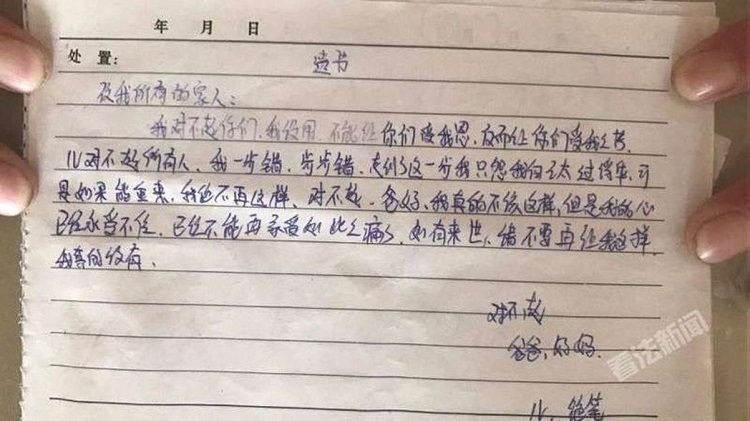 年 月 日
处 置： 遗书
致我所有的家人：
我对不起你们，我没用，不能让你们受我恩，反而让你们受我之苦，
对不起所有人，我一步错，步步错，走到了这一步我只怨我自己太过，可
是如果能重来，我绝不再这样，对不起，爸妈，我真的不该这样，但是我的心
已经承受不住，已经不能再承受如此之痛了，如有来世，请不要再让我这样，
我等回没有。
对不起
爸爸，妈妈。
绝笔
看法新闻